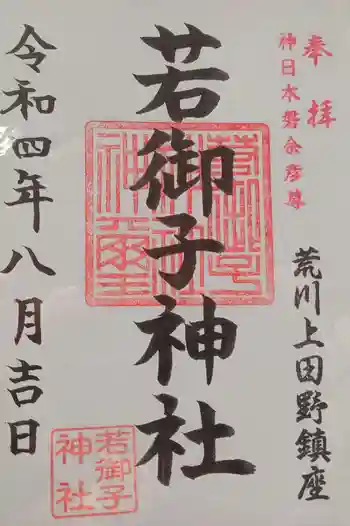 奉拝
神日本磐余彦尊
荒川上田野鎮座
若御子神社
若御子
神社
令和四年八月吉日